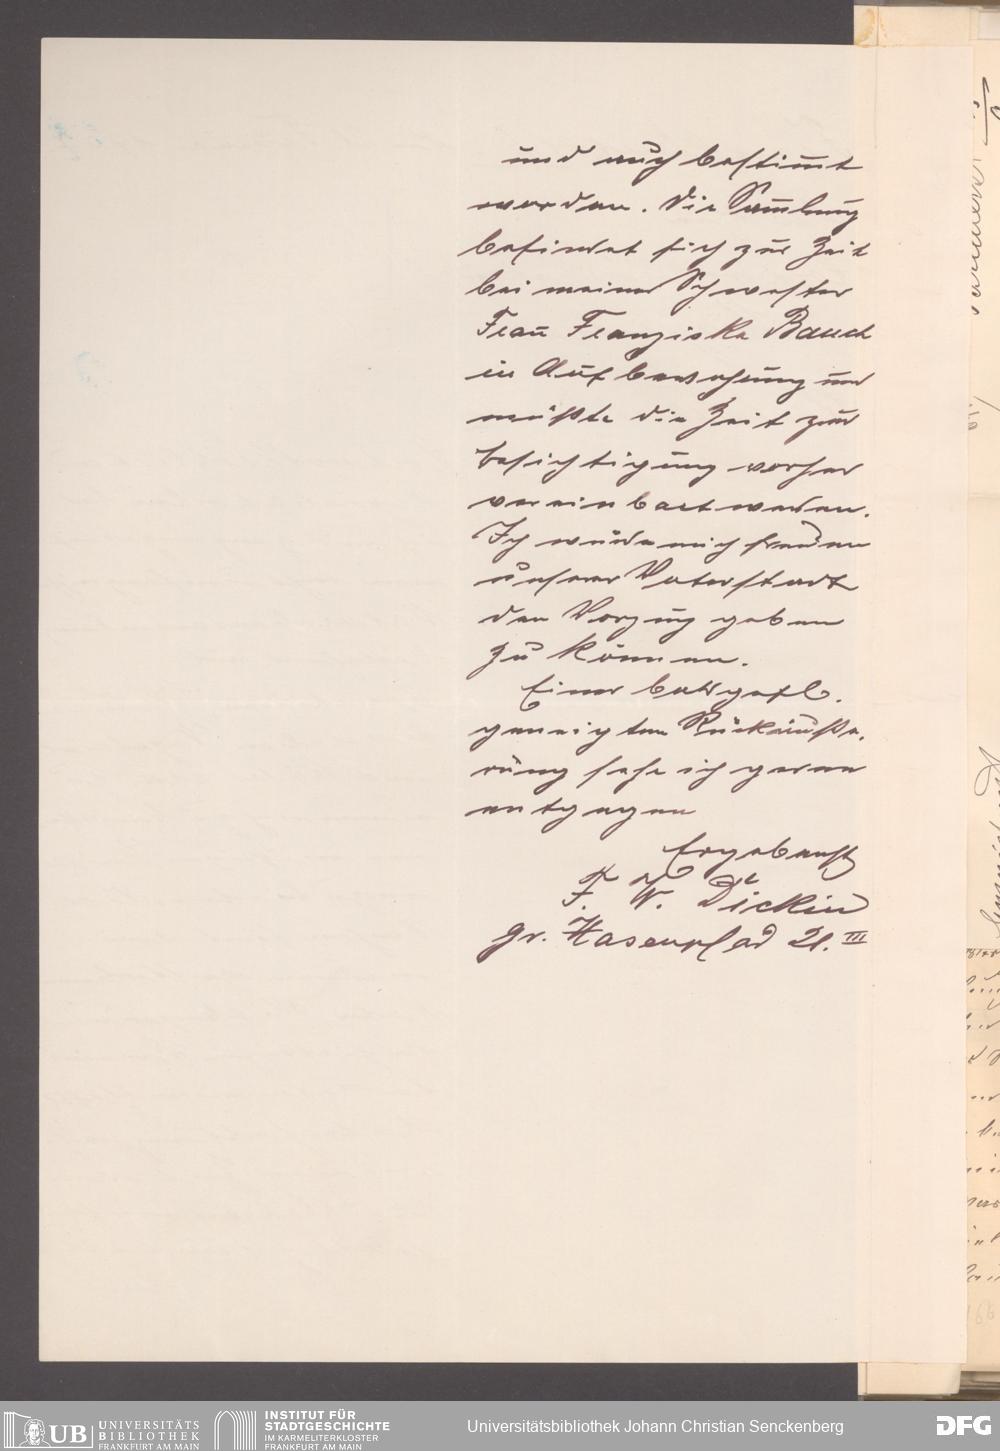 und auch bestimmt
worden. Die Sammlung
befindet sich zur Zeit
bei meiner Schwester
Frau Franziska Bauch
in Aufbewahrung und
müßte die Zeit zur
Besichtigung vorher
vereinbart werden.
Ich würde mich freuen
unserer Vaterstadt
den Vorzug geben
zu können.
Einer gefl.
geneigten Rückäuße,
rung sehe ich gerne
entgegen
Ergebenst
F. W.
gr. Hasenpfad 21. III
UB UNIVERSITÄTS
BIBLIOTHEK
FRANKFURT AM MAIN
INSTITUT FÜR
STADTGESCHICHTE
IM KARMELITERKLOSTER
FRANKFURT AM MAIN
Universitätsbibliothek Johann Christian Senckenberg
DFG